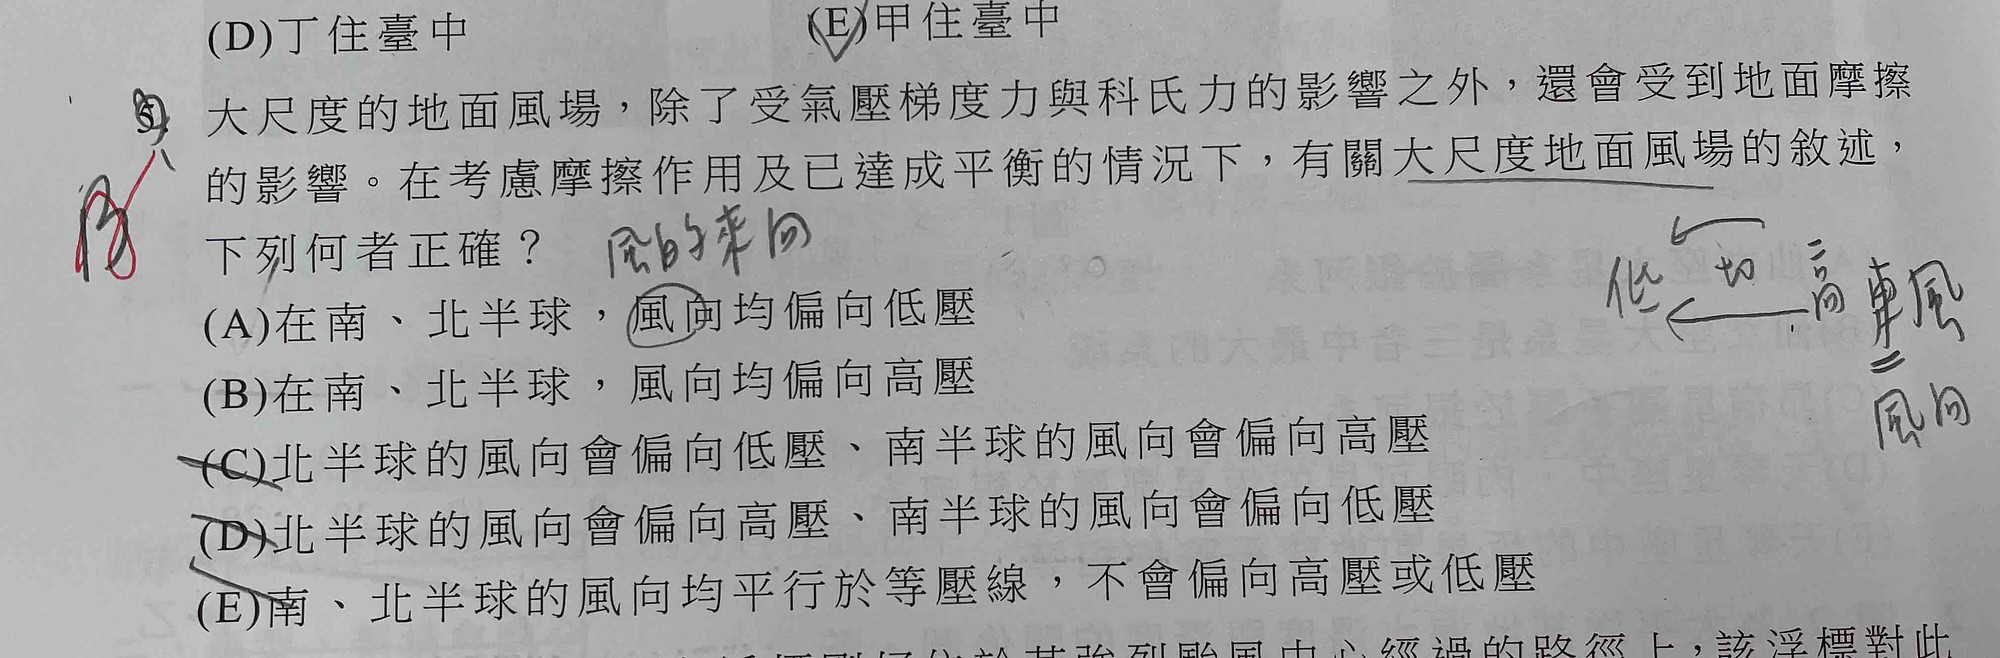 (D)丁住臺中 (E)甲住臺中
大尺度的地面風場，除了受氣壓梯度力與科氏力的影響之外，還會受到地面摩擦
的影響。在考慮摩擦作用及已達成平衡的情況下，有關大尺度地面風場的敘述，
下列何者正確？ 風的來向
(A)在南、北半球，風向均偏向低壓
低 高 東風
=
風向
(B)在南、北半球，風向均偏向高壓
(C)北半球的風向會偏向低壓、南半球的風向會偏向高壓
(D)北半球的風向會偏向高壓、南半球的風向會偏向低壓
(E)南、北半球的風向均平行於等壓線，不會偏向高壓或低壓
颱風中心經過的路徑上，該浮標對此